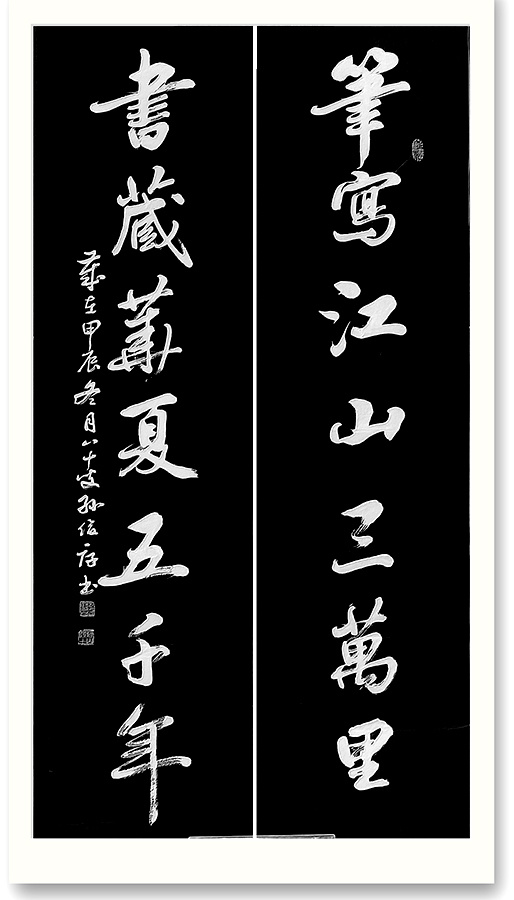 筆寫江山三萬里
書藏華夏五千年
歲在甲辰冬月八十叟孫俊存書